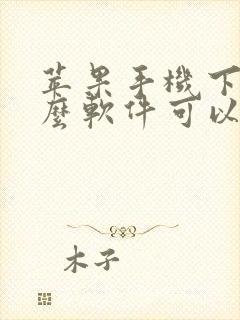 苹果手機下
麼軟件可以
木子